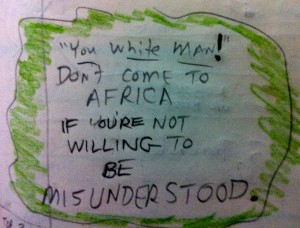 "You white man!"
DON'T COME TO
AFRICA
IF YOU'RE NOT
WILLING TO
BE
MISUNDERSTOOD.